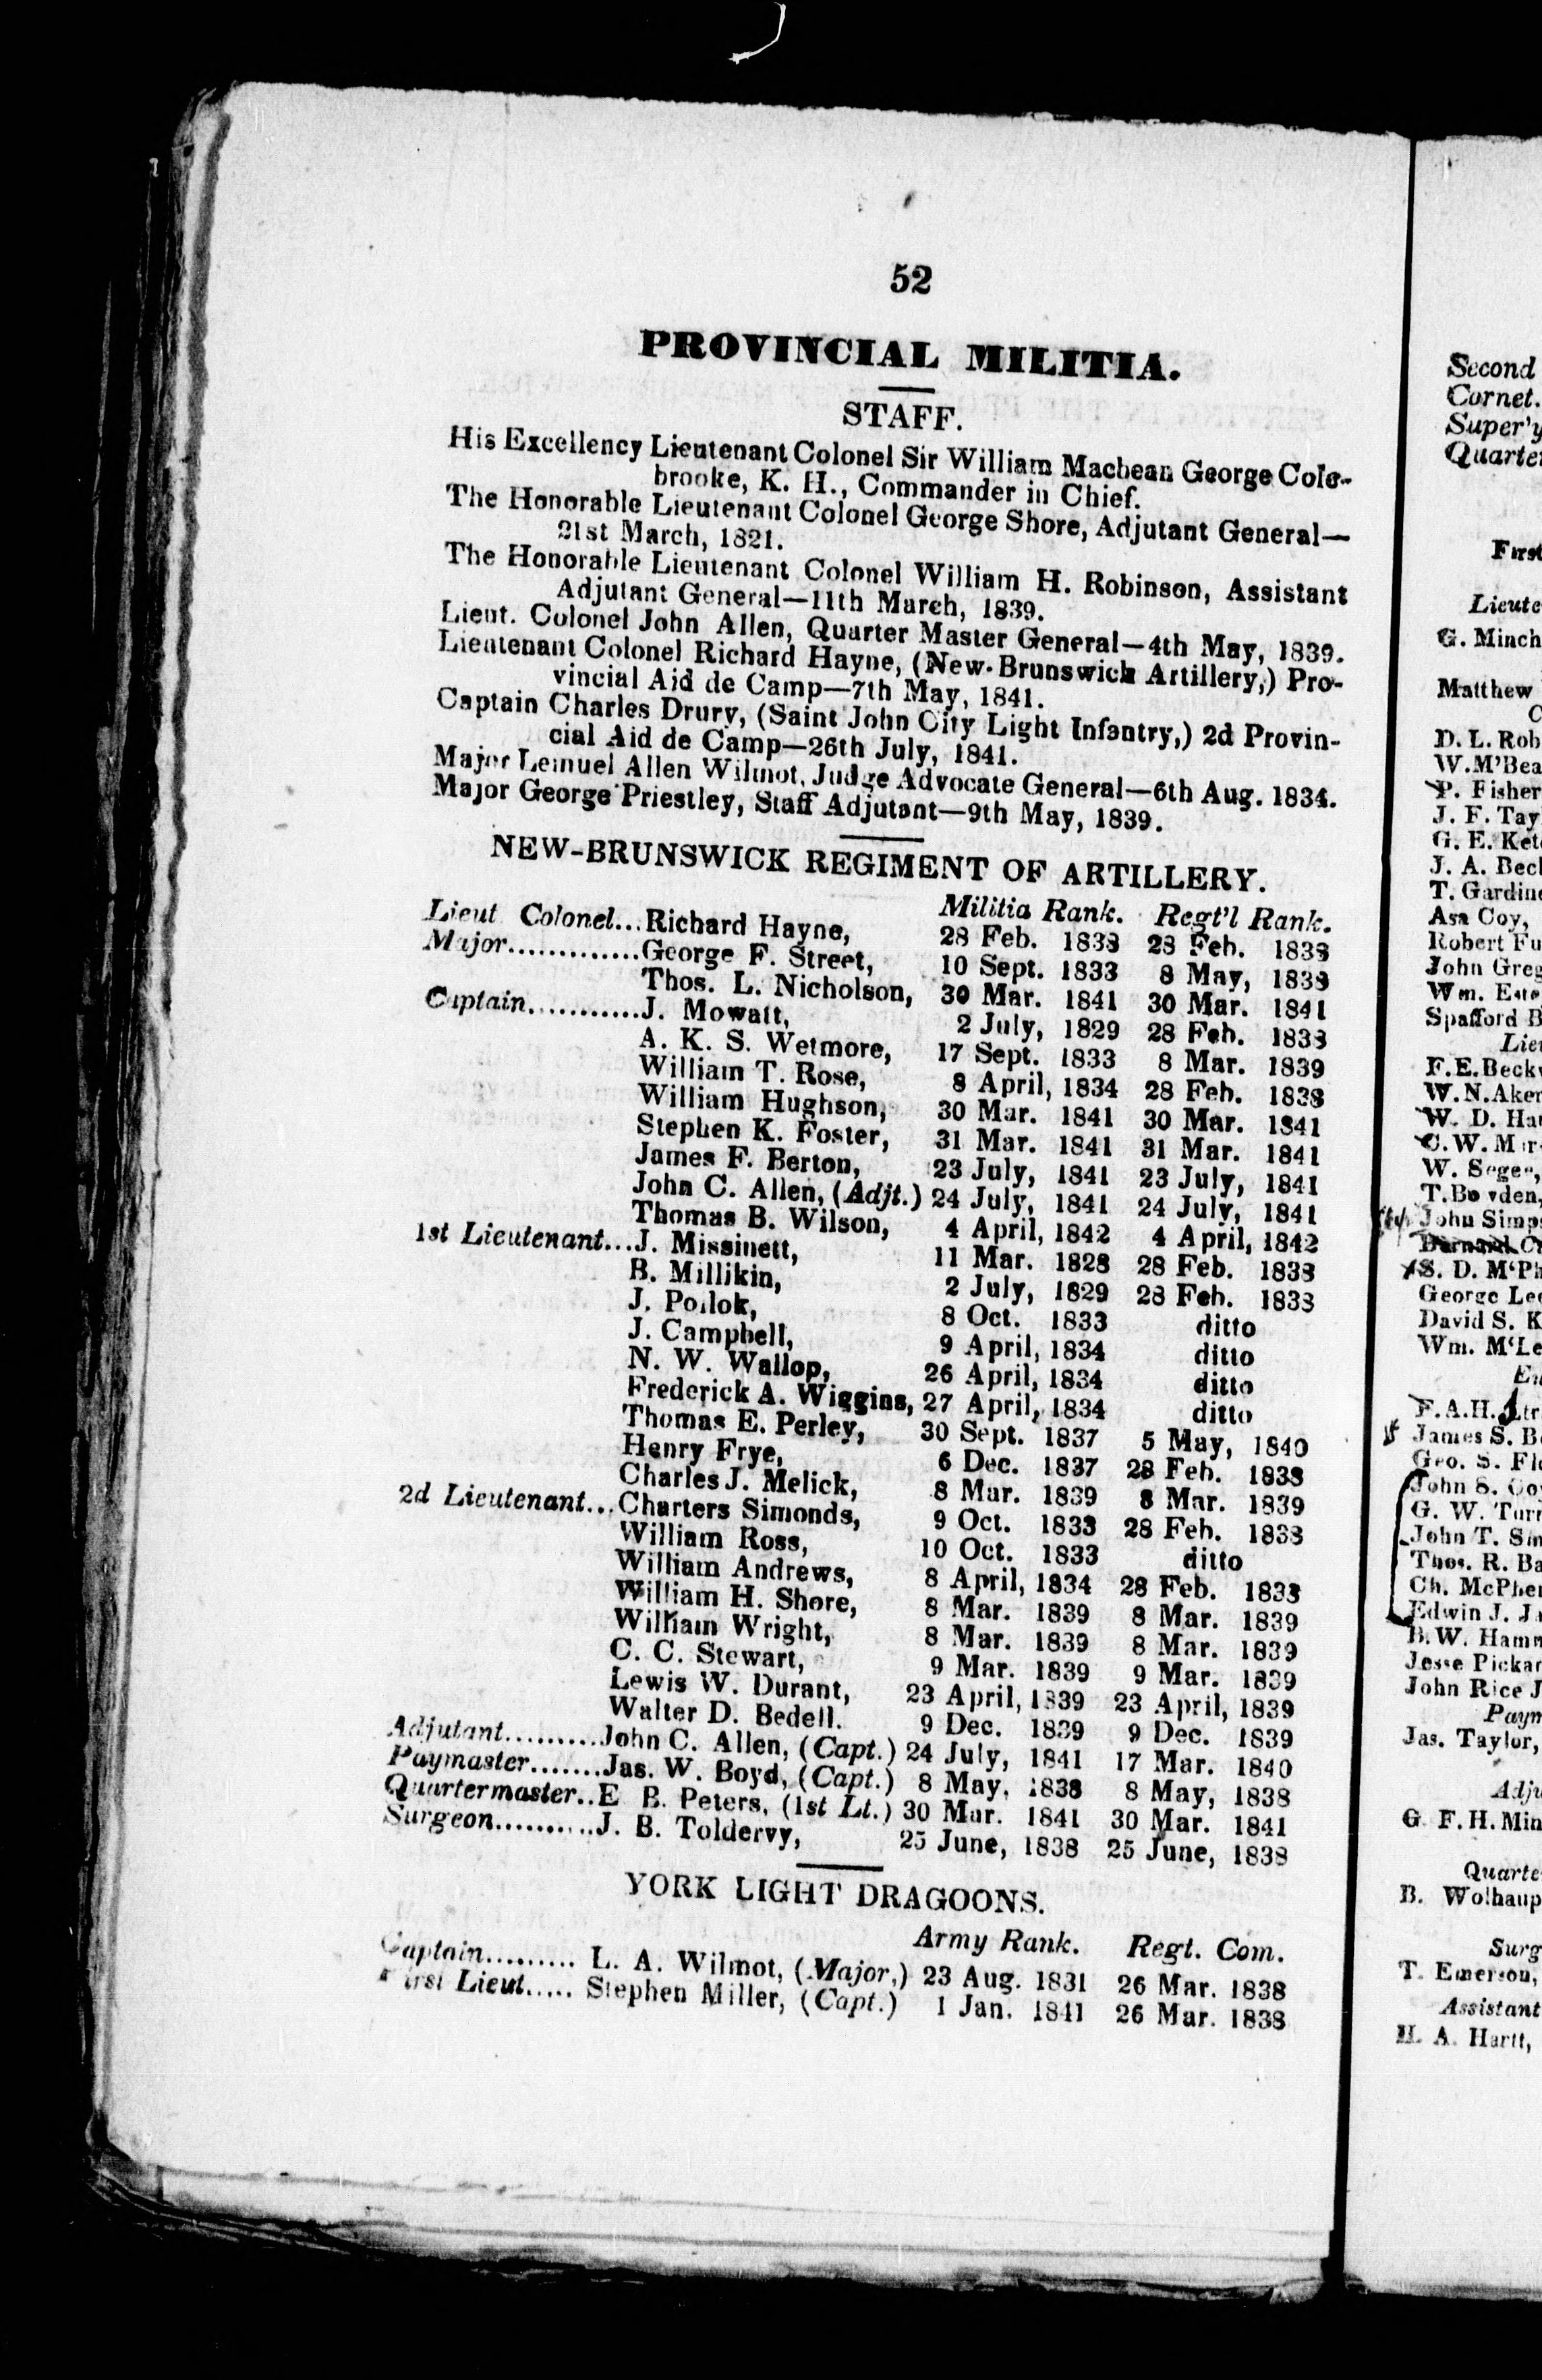 52
PROVINCIAL MILITIA.
STAFF.
His Excellency Lieutenant Colonel Sir William Macbean George Cole-
brooke, K. H., Commander in Chief.
The Honorable Lieutenant Colonel George Shore, Adjutant General—
21st March, 1821.
The Honorable Lieutenant Colonel William H. Robinson, Assistant
Adjutant General—11th March, 1839.
Lieut. Colonel John Allen, Quarter Master General—4th May, 1839.
Lieutenant Colonel Richard Hayne, (New-Brunswick Artillery,) Pro-
vincial Aid de Camp—7th May, 1841.
Captain Charles Drury, (Saint John City Light Infantry,) 2d Provin-
cial Aid de Camp—26th July, 1841.
Major Lemuel Allen Wilmot, Judge Advocate General—6th Aug. 1834.
Major George Priestley, Staff Adjutant—9th May, 1839.
NEW-BRUNSWICK REGIMENT OF ARTILLERY.
Militia Rank. Regt'l Rank.
Lieut Colonel...Richard Hayne, 28 Feb. 1838 28 Feb. 1838
Major.............George F. Street, 10 Sept. 1833 8 May, 1839
Thos. L. Nicholson, 30 Mar. 1841 30 Mar. 1841
Captain...........J. Mowatt, 2 July, 1829 28 Feb. 1838
A. K. S. Wetmore, 17 Sept. 1833 8 Mar. 1839
William T. Rose, 8 April, 1834 28 Feb. 1838
William Hughson, 30 Mar. 1841 30 Mar. 1841
Stephen K. Foster, 31 Mar. 1841 31 Mar. 1841
James F. Berton, 23 July, 1841 23 July, 1841
John C. Allen, (Adjt.) 24 July, 1841 24 July, 1841
Thomas B. Wilson, 4 April, 1842 4 April, 1842
1st Lieutenant...J. Missinett, 11 Mar. 1828 28 Feb. 1838
B. Millikin, 2 July, 1829 28 Feb. 1838
J. Pollok, 8 Oct. 1833 ditto
J. Campbell, 9 April, 1834 ditto
N. W. Wallop, 26 April, 1834 ditto
Frederick A. Wiggins, 27 April, 1834 ditto
Thomas E. Perley, 30 Sept. 1837 5 May, 1840
Henry Frye, 6 Dec. 1837 28 Feb. 1838
Charles J. Melick, 8 Mar. 1839 8 Mar. 1839
2d Lieutenant...Charters Simonds, 9 Oct. 1833 28 Feb. 1838
William Ross, 10 Oct. 1833 ditto
William Andrews, 8 April, 1834 28 Feb. 1838
William H. Shore, 8 Mar. 1839 8 Mar. 1839
William Wright, 8 Mar. 1839 8 Mar. 1839
C. C. Stewart, 9 Mar. 1839 9 Mar. 1839
Lewis W. Durant, 23 April, 1839 23 April, 1839
Walter D. Bedell. 9 Dec. 1839 9 Dec. 1839
Adjutant..........John C. Allen, (Capt.) 24 July, 1841 17 Mar. 1840
Paymaster........Jas. W. Boyd, (Capt.) 8 May, 1838 8 May, 1838
Quartermaster..E B. Peters, (1st Lt.) 30 Mar. 1841 30 Mar. 1841
Surgeon...........J. B. Toldervy, 25 June, 1838 25 June, 1838
YORK LIGHT DRAGOONS.
Army Rank. Regt. Com.
Captain......... L. A. Wilmot, (Major,) 23 Aug. 1831 26 Mar. 1838
First Lieut..... Stephen Miller, (Capt.) 1 Jan. 1841 26 Mar. 1838
Second
Cornet.
Super'y
Quarte
First
Lieute
G. Minch
Matthew
C
D. L. Rob
W. M'Bea
P. Fisher
J. F. Tay
G. E. Ket
J. A. Bec
T. Gardin
Asa Coy,
Robert Fu
John Greg
Wm. Este
Spafford B
Lie
F. E. Beck
W. N. Aker
W. D. Ha
C. W. M
W. Segee,
T. Bowden,
John Simp
S. D. M'Ph
George Le
David S. K
Wm. M'Le
En
F. A. H.
James S. B
Geo. S. Fl
John S. Co
G. W. Turr
John T. Sm
Thos. R. Ba
Ch. McPhe
Edwin J. J
B. W. Hamm
Jesse Pickar
John Rice J
Paym
Jas. Taylor,
Adju
G F. H. Min
Quarte
B. Wolhaup
Surg
T. Emerson,
Assistant
H. A. Hartt,